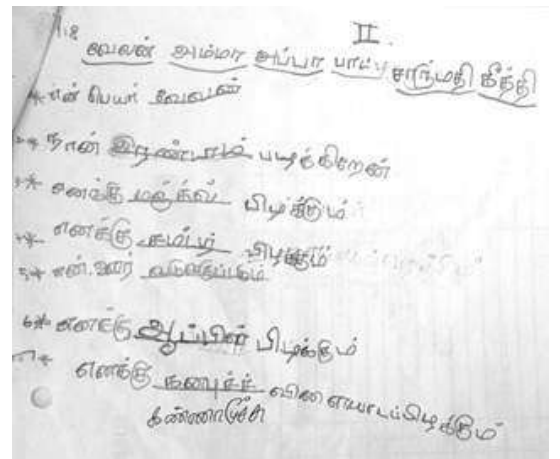 1.8 II.
வேலன் அம்மா அப்பா பாப்பா சாரும்தி கீத்தி
* என் பெயர் வேலன்
2* நான் இரண்டாம் படிக்கிறேன்
3* எனக்கு மஞ்சள் பிடிக்கும்
4* எனக்கு பிடிக்கும்
5* என் ஊர்
6* எனக்கு ஆப்பிள் பிடிக்கும்
7* எனக்கு விளையாடப்பிடிக்கும்
கண்ணாமூச்சி